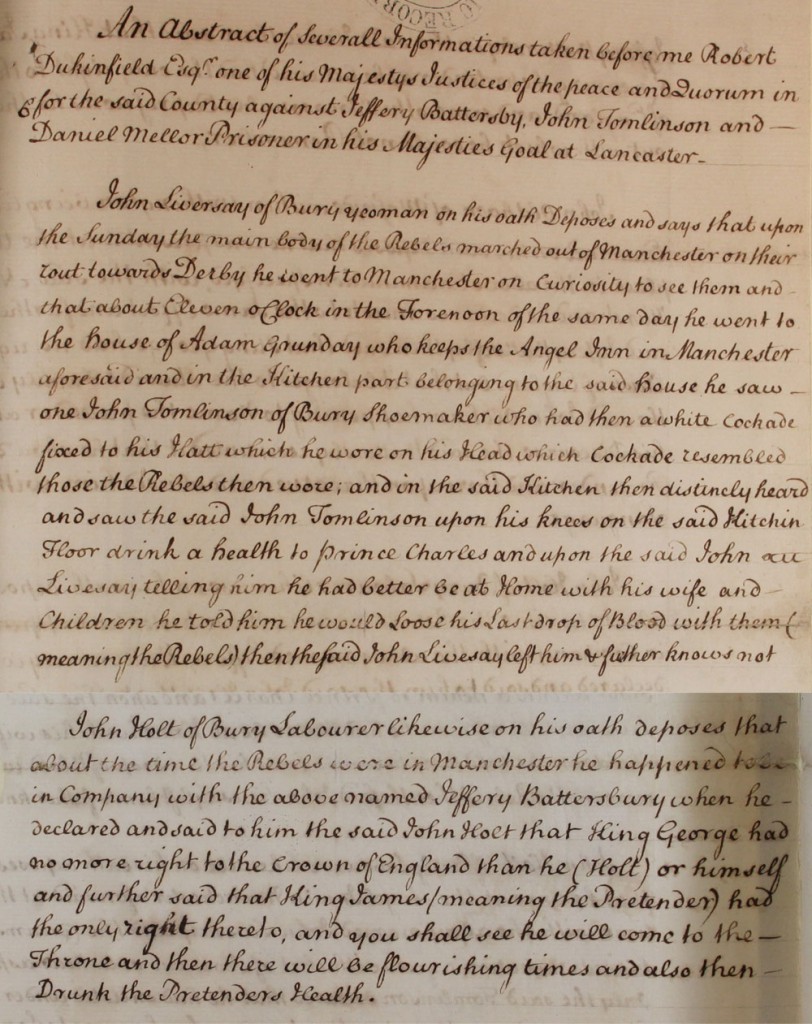 RECOR
An Abstract of Severall Informations taken before me Robert
Dukinfield Esqr. one of his Majestys Justices of the peace and Quorum in
& for the said County against Jeffery Battersby, John Tomlinson and —
Daniel Mellor Prisoner in his Majesties Goal at Lancaster -
John Liversay of Bury yeoman on his oath Deposes and says that upon
the Sunday the main body of the Rebels marched out of Manchester on their
rout towards Derby he went to Manchester on Curiosity to see them and -
that about Eleven o Clock in the Forenoon of the same day he went to
the house of Adam Grunday who keeps the Angel Inn in Manchester
aforesaid and in the Kitchen part belonging to the said house he saw —
one John Tomlinson of Bury Shoemaker who had then a white Cockade
fixed to his Hatt which he wore on his Head which Cockade resembled
those the Rebels then wore; and in the said Kitchen then distincly heard
and saw the said John Tomlinson upon his knees on the said Kitchin
Floor drink a health to prince Charles and upon the said John
Livesay telling him he had better be at Home with his wife and —
Children he told him he would Loose his Last drop of Blood with them (
meaning the Rebels) then the said John Livesay left him & further knows not
John Holt of Bury Labourer likewise on his oath deposes that
about the time the Rebels were in Manchester he happened to be
in Company with the above named Jeffery Battersbury when he -
declared and said to him the said John Holt that King George had
no more right to the Crown of England than he (Holt) or himself
and further said that King James (meaning the Pretender) had
the only right thereto, and you shall see he will come to the —
Throne and then there will be flourishing times and also then —
Drunk the Pretenders Health.